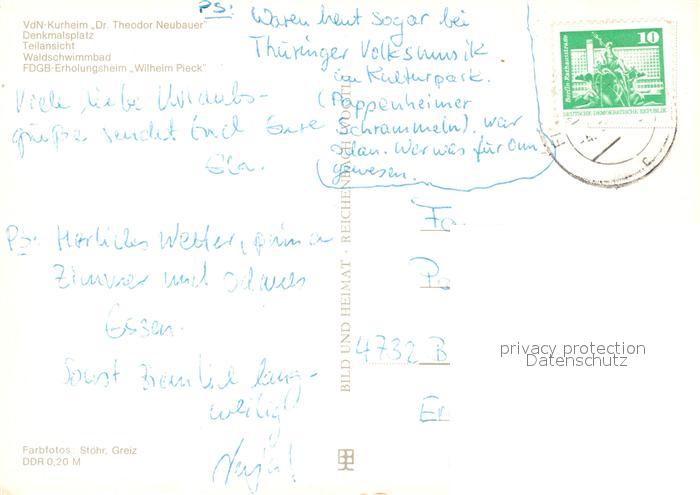 VdN-Kurheim „Dr. Theodor Neubauer"
Denkmalsplatz
Teilansicht
Waldschwimmbad
FDGB-Erholungsheim „Wilhelm Pieck"
Viele liebe Urlaubs-
grüße sendet Euch Eure
PS: Herrliches Wetter, prima
Zimmer und
Essen.
Sonst ziemlich lang-
weilig!
PS: Waren heut sogar bei
Thüringer Volksmusik
im Kulturpark.
(Pappenheimer
Schrammeln). War
Wär was für Omi
gewesen.
Fa
4732 B
BILD UND HEIMAT · REICHENBACH
Farbfotos: Stöhr, Greiz
DDR 0,20 M
10
Berlin, Rathausstraße
DEUTSCHE DEMOKRATISCHE REPUBLIK
privacy protection
Datenschutz